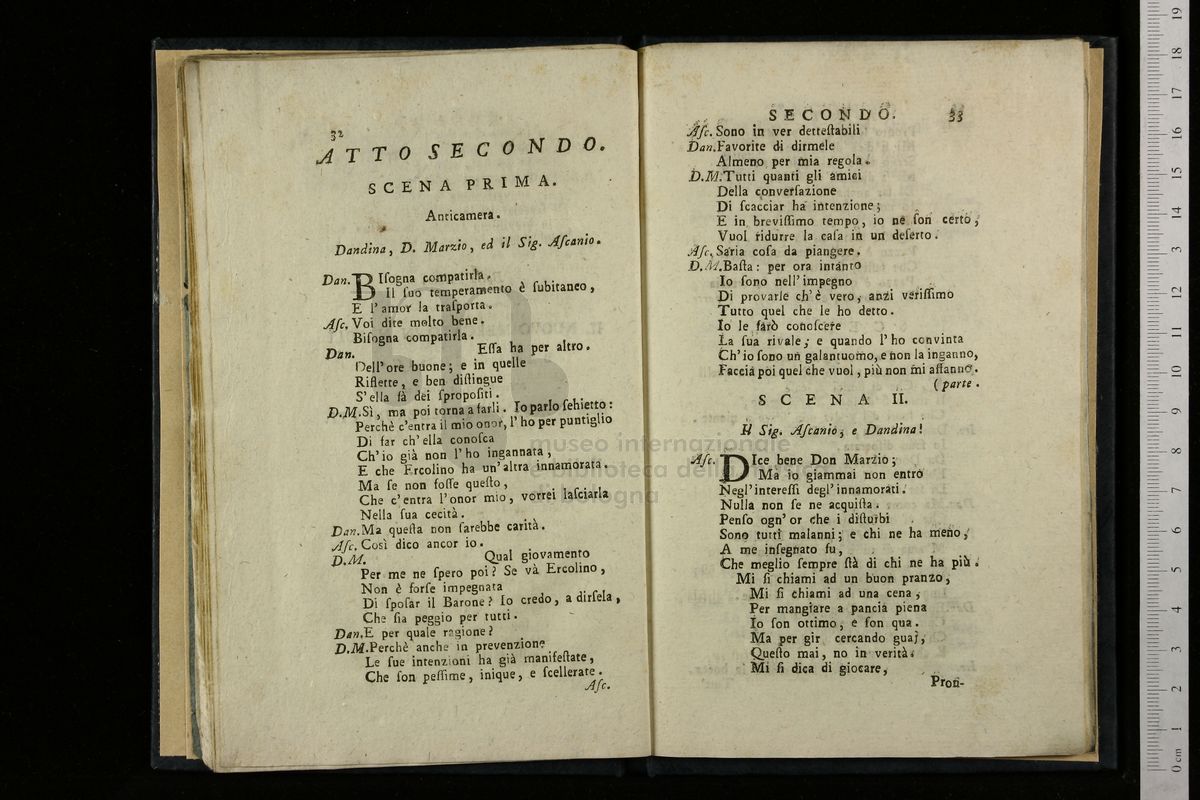 32
ATTO SECONDO.
SCENA PRIMA.
Anticamera.
Dandina, D. Marzio, ed il Sig. Aſcanio.
Dan. BIſogna compatirla.
Il ſuo temperamento è ſubitaneo,
E l'amor la traſporta.
Aſc. Voi dite molto bene.
Biſogna compatirla.
Dan. Eſſa ha per altro.
Dell'ore buone; e in quelle
Riflette, e ben diſtingue
S'ella fà dei ſpropoſiti.
D.M.Sì, ma poi torna a farli. Io parlo ſchietto:
Perchè c'entra il mio onor, l'ho per puntiglio
Di far ch'ella conoſca
Ch'io già non l'ho ingannata,
E che Ercolino ha un'altra innamorata.
Ma ſe non foſſe queſto,
Che c'entra l'onor mio, vorrei laſciarla
Nella ſua cecità.
Dan.Ma queſta non ſarebbe carità.
Aſc. Così dico ancor io.
D.M. Qual giovamento
Per me ne ſpero poi? Se và Ercolino,
Non è forſe impegnata
Di ſpoſar il Barone? Io credo, a dirſela,
Che ſia peggio per tutti.
Dan.E per quale ragione?
D.M.Perchè anche in prevenzione
Le ſue intenzioni ha già manifeſtate,
Che ſon peſſime, inique, e ſcellerate.
Aſc.
SECONDO. 33
Aſc. Sono in ver detteſtabili
Dan.Favorite di dirmele
Almeno per mia regola.
D.M.Tutti quanti gli amici
Della converſazione
Di ſcacciar ha intenzione;
E in breviſſimo tempo, io ne ſon certo,
Vuol ridurre la caſa in un deſerto.
Aſc. Saria coſa da piangere.
D.M.Baſta: per ora intanto
Io ſono nell'impegno
Di provarle ch'è vero, anzi veriſſimo
Tutto quel che le ho detto.
Io le farò conoſcere
La ſua rivale; e quando l'ho convinta
Ch'io ſono un galantuomo, e non la inganno,
Faccia poi quel che vuol, più non mi affanno.
(parte.
SCENA II.
Il Sig. Aſcanio, e Dandina!
Aſc. DIce bene Don Marzio;
Ma io giammai non entro
Negl'intereſſi degl'innamorati.
Nulla non ſe ne acquiſta.
Penſo ogn'or che i diſturbi
Sono tutti malanni; e chi ne ha meno,
A me inſegnato fu,
Che meglio ſempre ſtà di chi ne ha più.
Mi ſi chiami ad un buon pranzo,
Mi ſi chiami ad una cena,
Per mangiare a pancia piena
Io ſon ottimo, e ſon qua.
Ma per gir cercando guaj,
Queſto mai, no in verità.
Mi ſi dica di giocare,
Pron-
museo internazionale
e biblioteca della musica
di bologna
0 cm 1 2 3 4 5 6 7 8 9 10 11 12 13 14 15 16 17 18 19